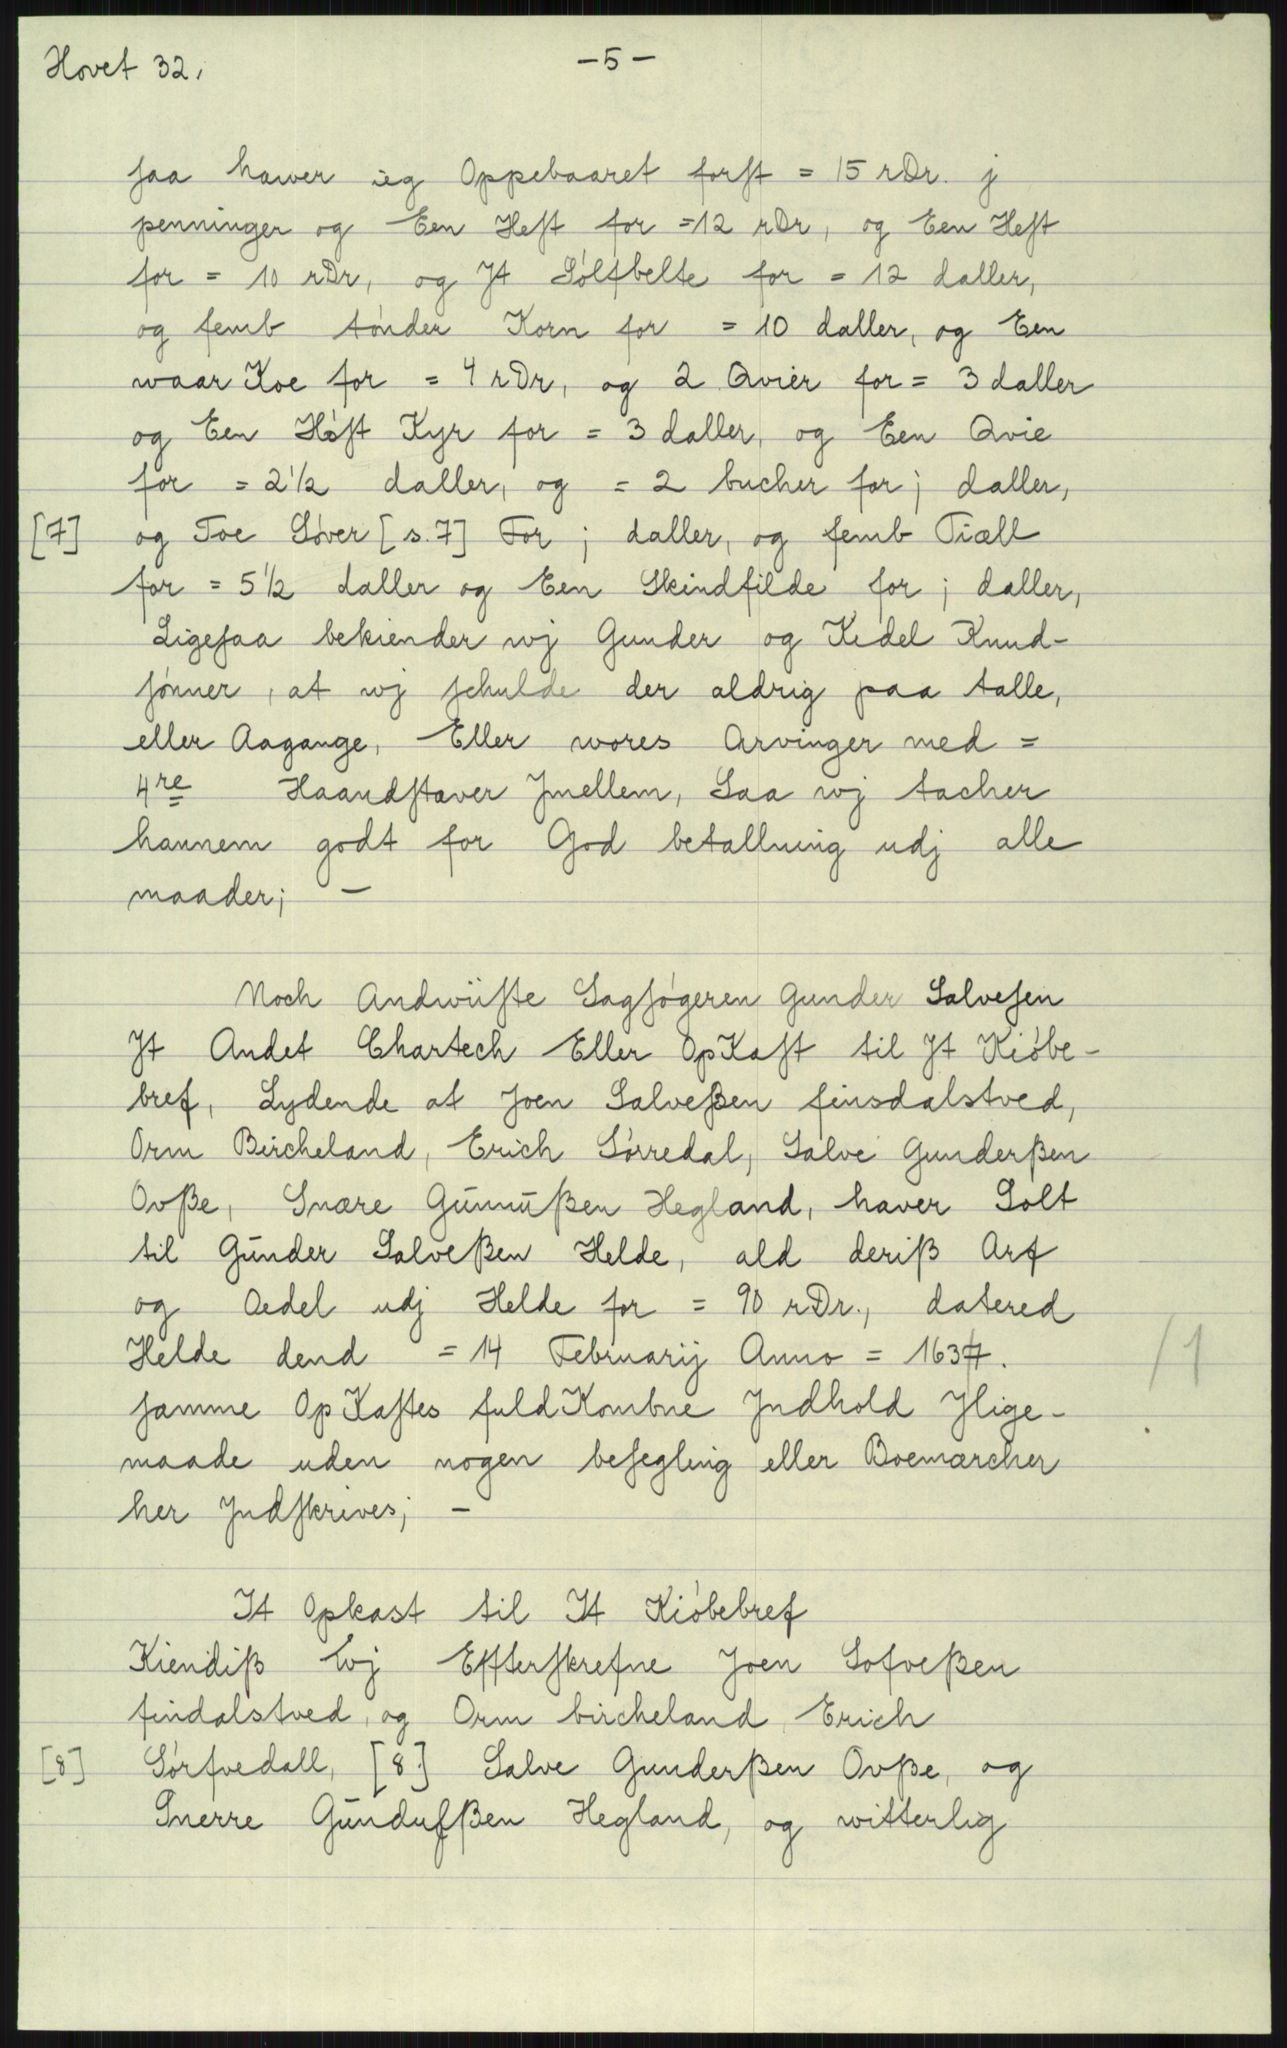 Hovet 32,
- 5 -
saa hawer ieg Oppebaaret forst = 15 rDr. j
penninger og Een Hest for =12 rDr, og Een Hest
for = 10 rDr, og Jt Sólfbelte for = 12 daller,
og femb tónder Korn for = 10 daller, og Een
waar Koe for = 4 rDr, og 2 Qvier for = 3 daller
og Een Hóst Kyr for = 3 daller, og Een Qvie
for = 2½ daller, og = 2 bucher for j daller,
[7] og Toe Sóver [s. 7] For j daller, og femb Tiæll
for = 5½ daller og Een Skindfilde for j daller,
Ligesaa bekiender wj Gunder og Kedel Knud-
sónner, at wj schulde der aldrig paa talle,
eller Aagange, Eller wores Arvinger med =
4re Haandstaver Jmellem, Saa wj tacher
hannem godt for God betallning udj alle
maader; -
Noch Andwiiste Sagsógeren Gunder Salvesen
Jt Andet Chartech Eller OpKast til Jt Kióbe-
bref, Lydende at Joen Salveßen finsdalstved,
Orm Bircheland, Erich Sórredal, Salve Gunderßen
Ovße, Snære Gūnnūßen Hegland, haver Solt
til Gūnder Salveßen Helde, ald deriß Arf
og Oedel udj Helde for = 90 rDr., datered
Helde dend = 14 Februarij Anno = 1637. /1
samme OpKastes fuldKombne Jndhold Jlige-
maade uden nogen besegling eller Boemærcher
her Jndskrives; -
It Opkast til It Kióbebref
Kiendiß Wj Effterskrefne Joen Sofveßen
findalstved, og Orm bircheland, Erich
[8] Sórfvedall, [8] Salve Gunderßen Ovße, og
Snerre Gūndufßen Hegland, og witterlig